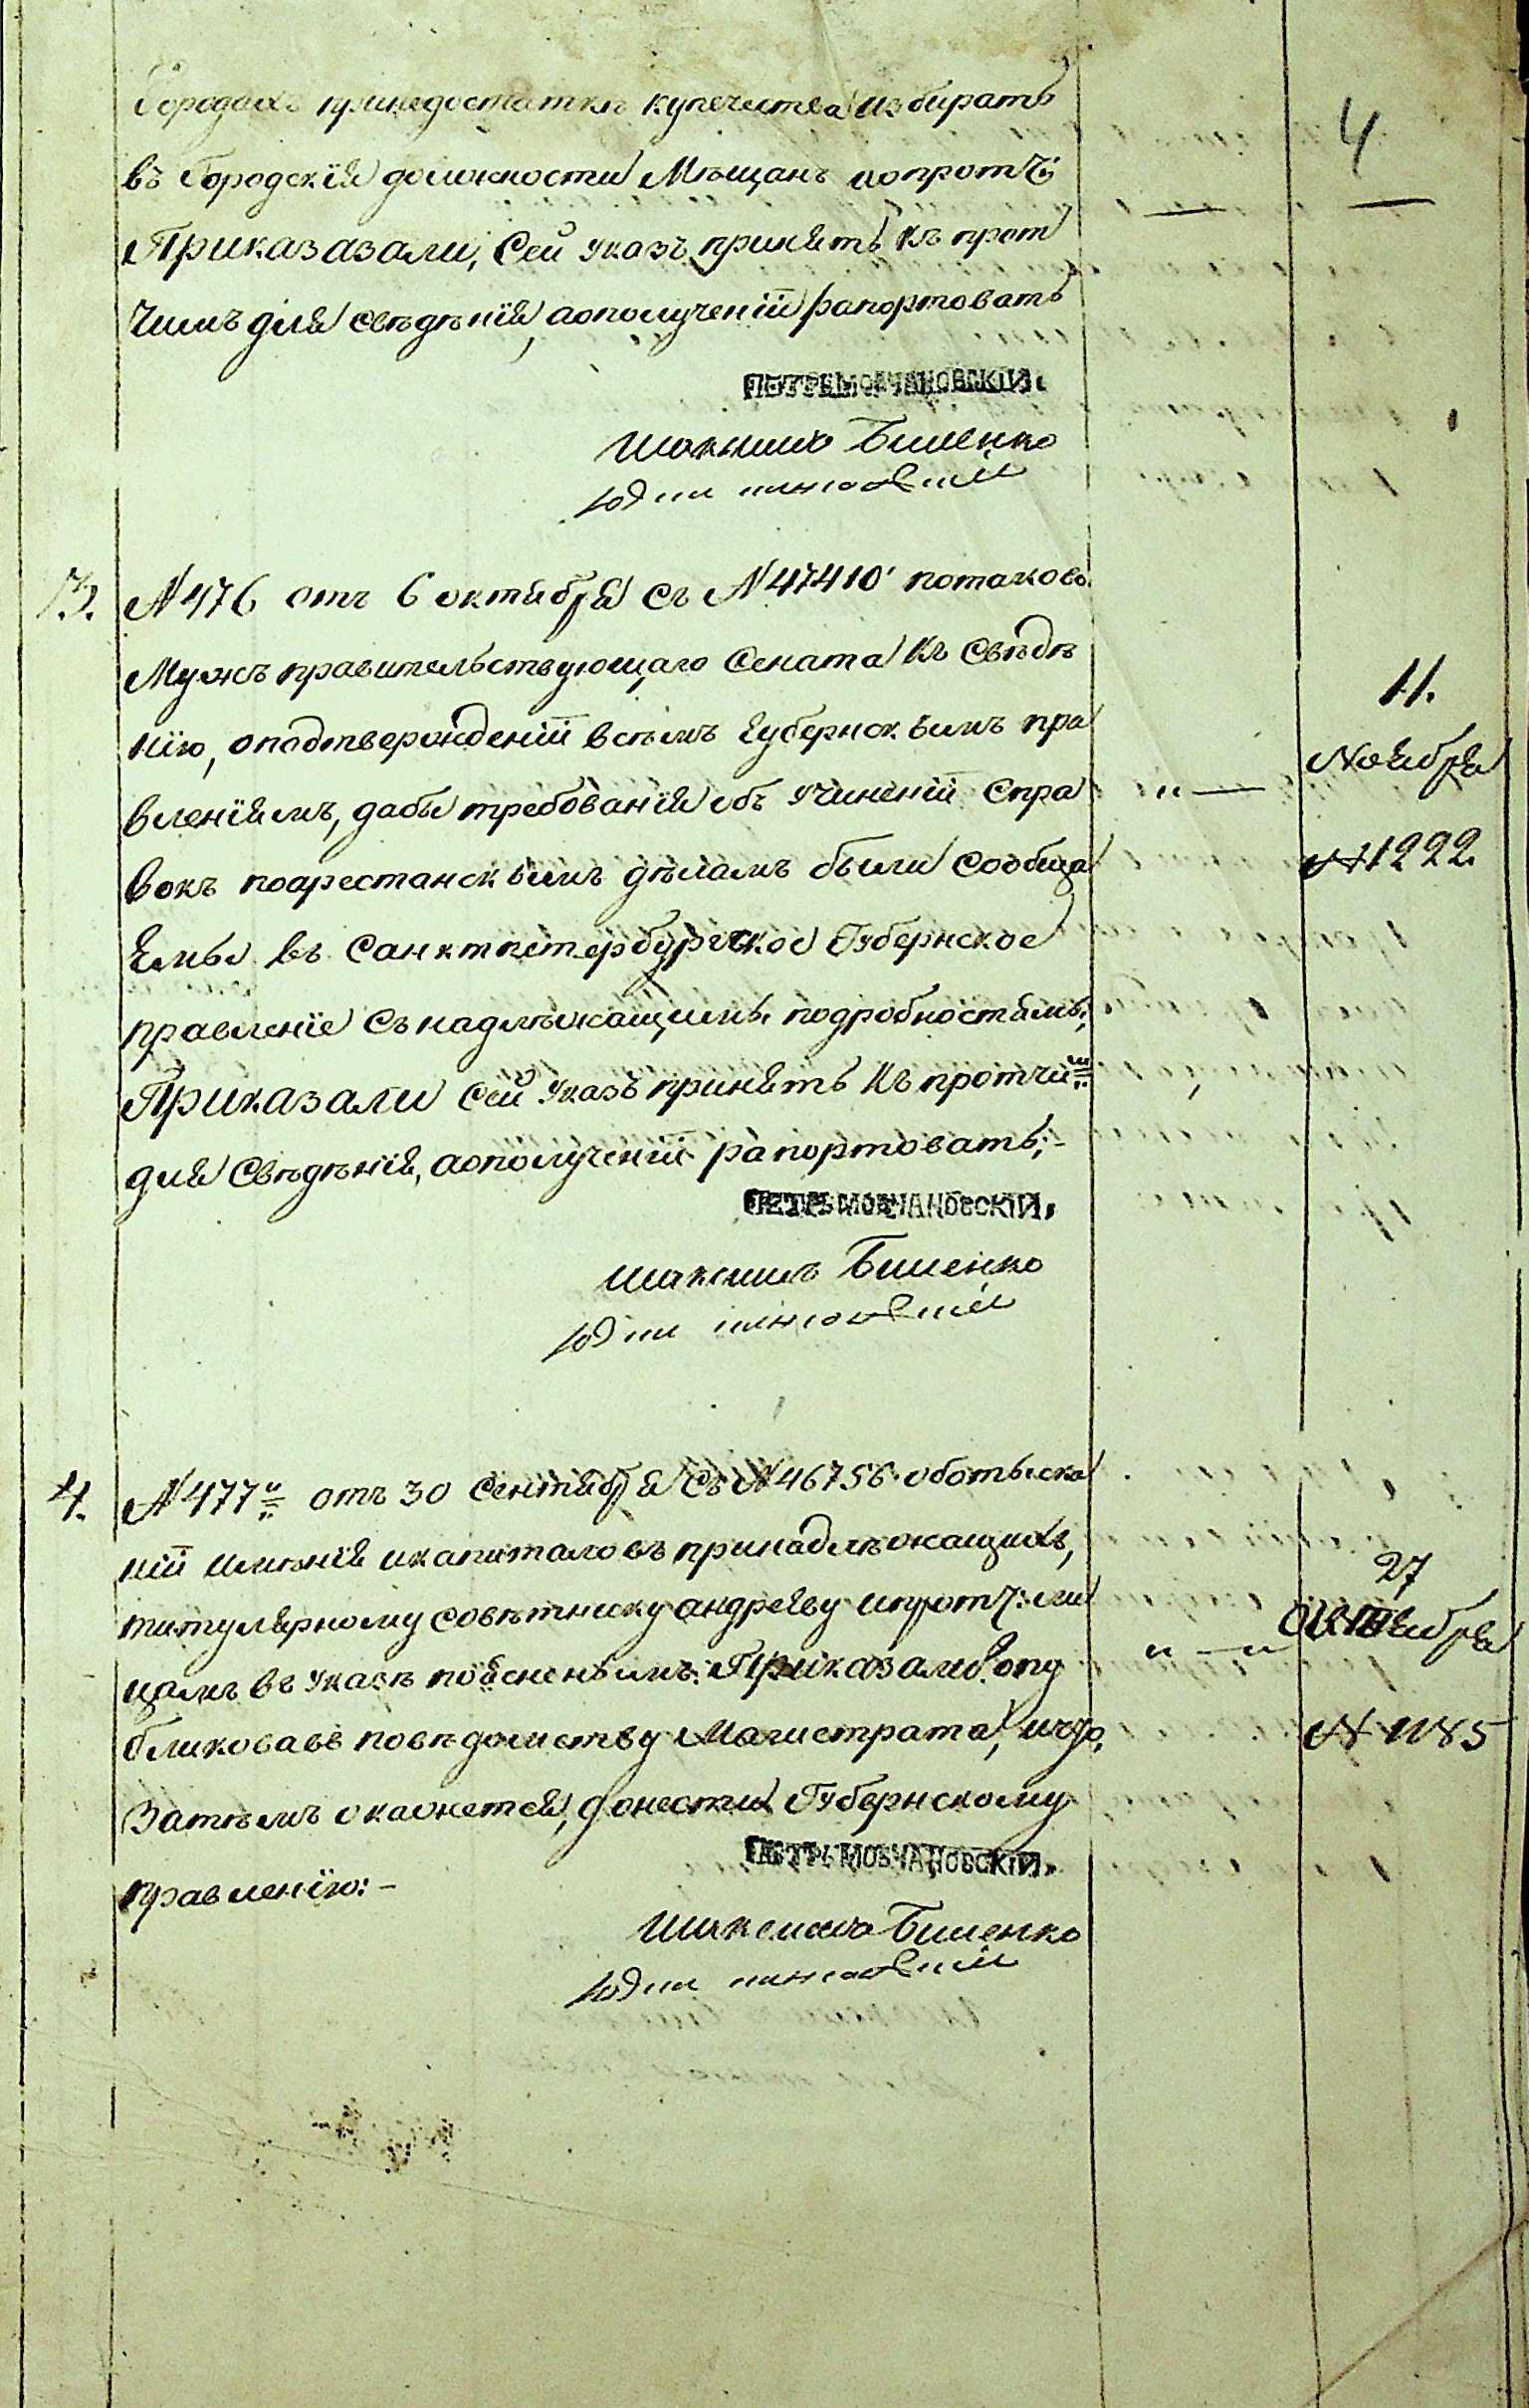 Городахъ принедостаткѣ купечества избирать
4
въ Городскія должности Мѣщанъ ипротч:
Приказазали, Сей указъ принять къ прот
чимъ для свѣдѣнія, аополученіи рапортовать
ПЕТРЪ МОВЧАНОВСКІЙ.
Максимъ Биленко
3. N 476 отъ 6 октября съ N 47410 потаково
Мужъ правительствующаго Сената къ Свѣдѣ
нію, оподтвержденіи всѣмъ Губернскимъ пра
вленіямъ, дабы требованія объ учиненіи Спра
вокъ поарестанскимъ дѣламъ были Сообща
емы въ Санктпетербургское Губернское
правленіе Съ надлѣжащимъ подробностямъ;
Приказали Сей указъ принять Къ протчимъ
для Свѣдѣнія, аополученіи рапортовать;-
11.
Ноября
N 1222.
ПЕТРЪ МОВЧАНОВСКІЙ.
Максимъ Биленко
4. N 477й отъ 30 Сентября Съ N 46756 оботыска
ніи имѣнія икапиталовъ принадлѣжащихъ,
титулярному совѣтнику андрееву ипротч: ли
цамъ въ указѣ поясненымъ: Приказали: опу
бликовавъ повѣдомству Магистрата, ичто,
Затѣмъ окажется, донести Губернскому
правленію:-
27
Октября
N 1185
ПЕТРЪ МОВЧАНОВСКІЙ.
Максимъ Биленко